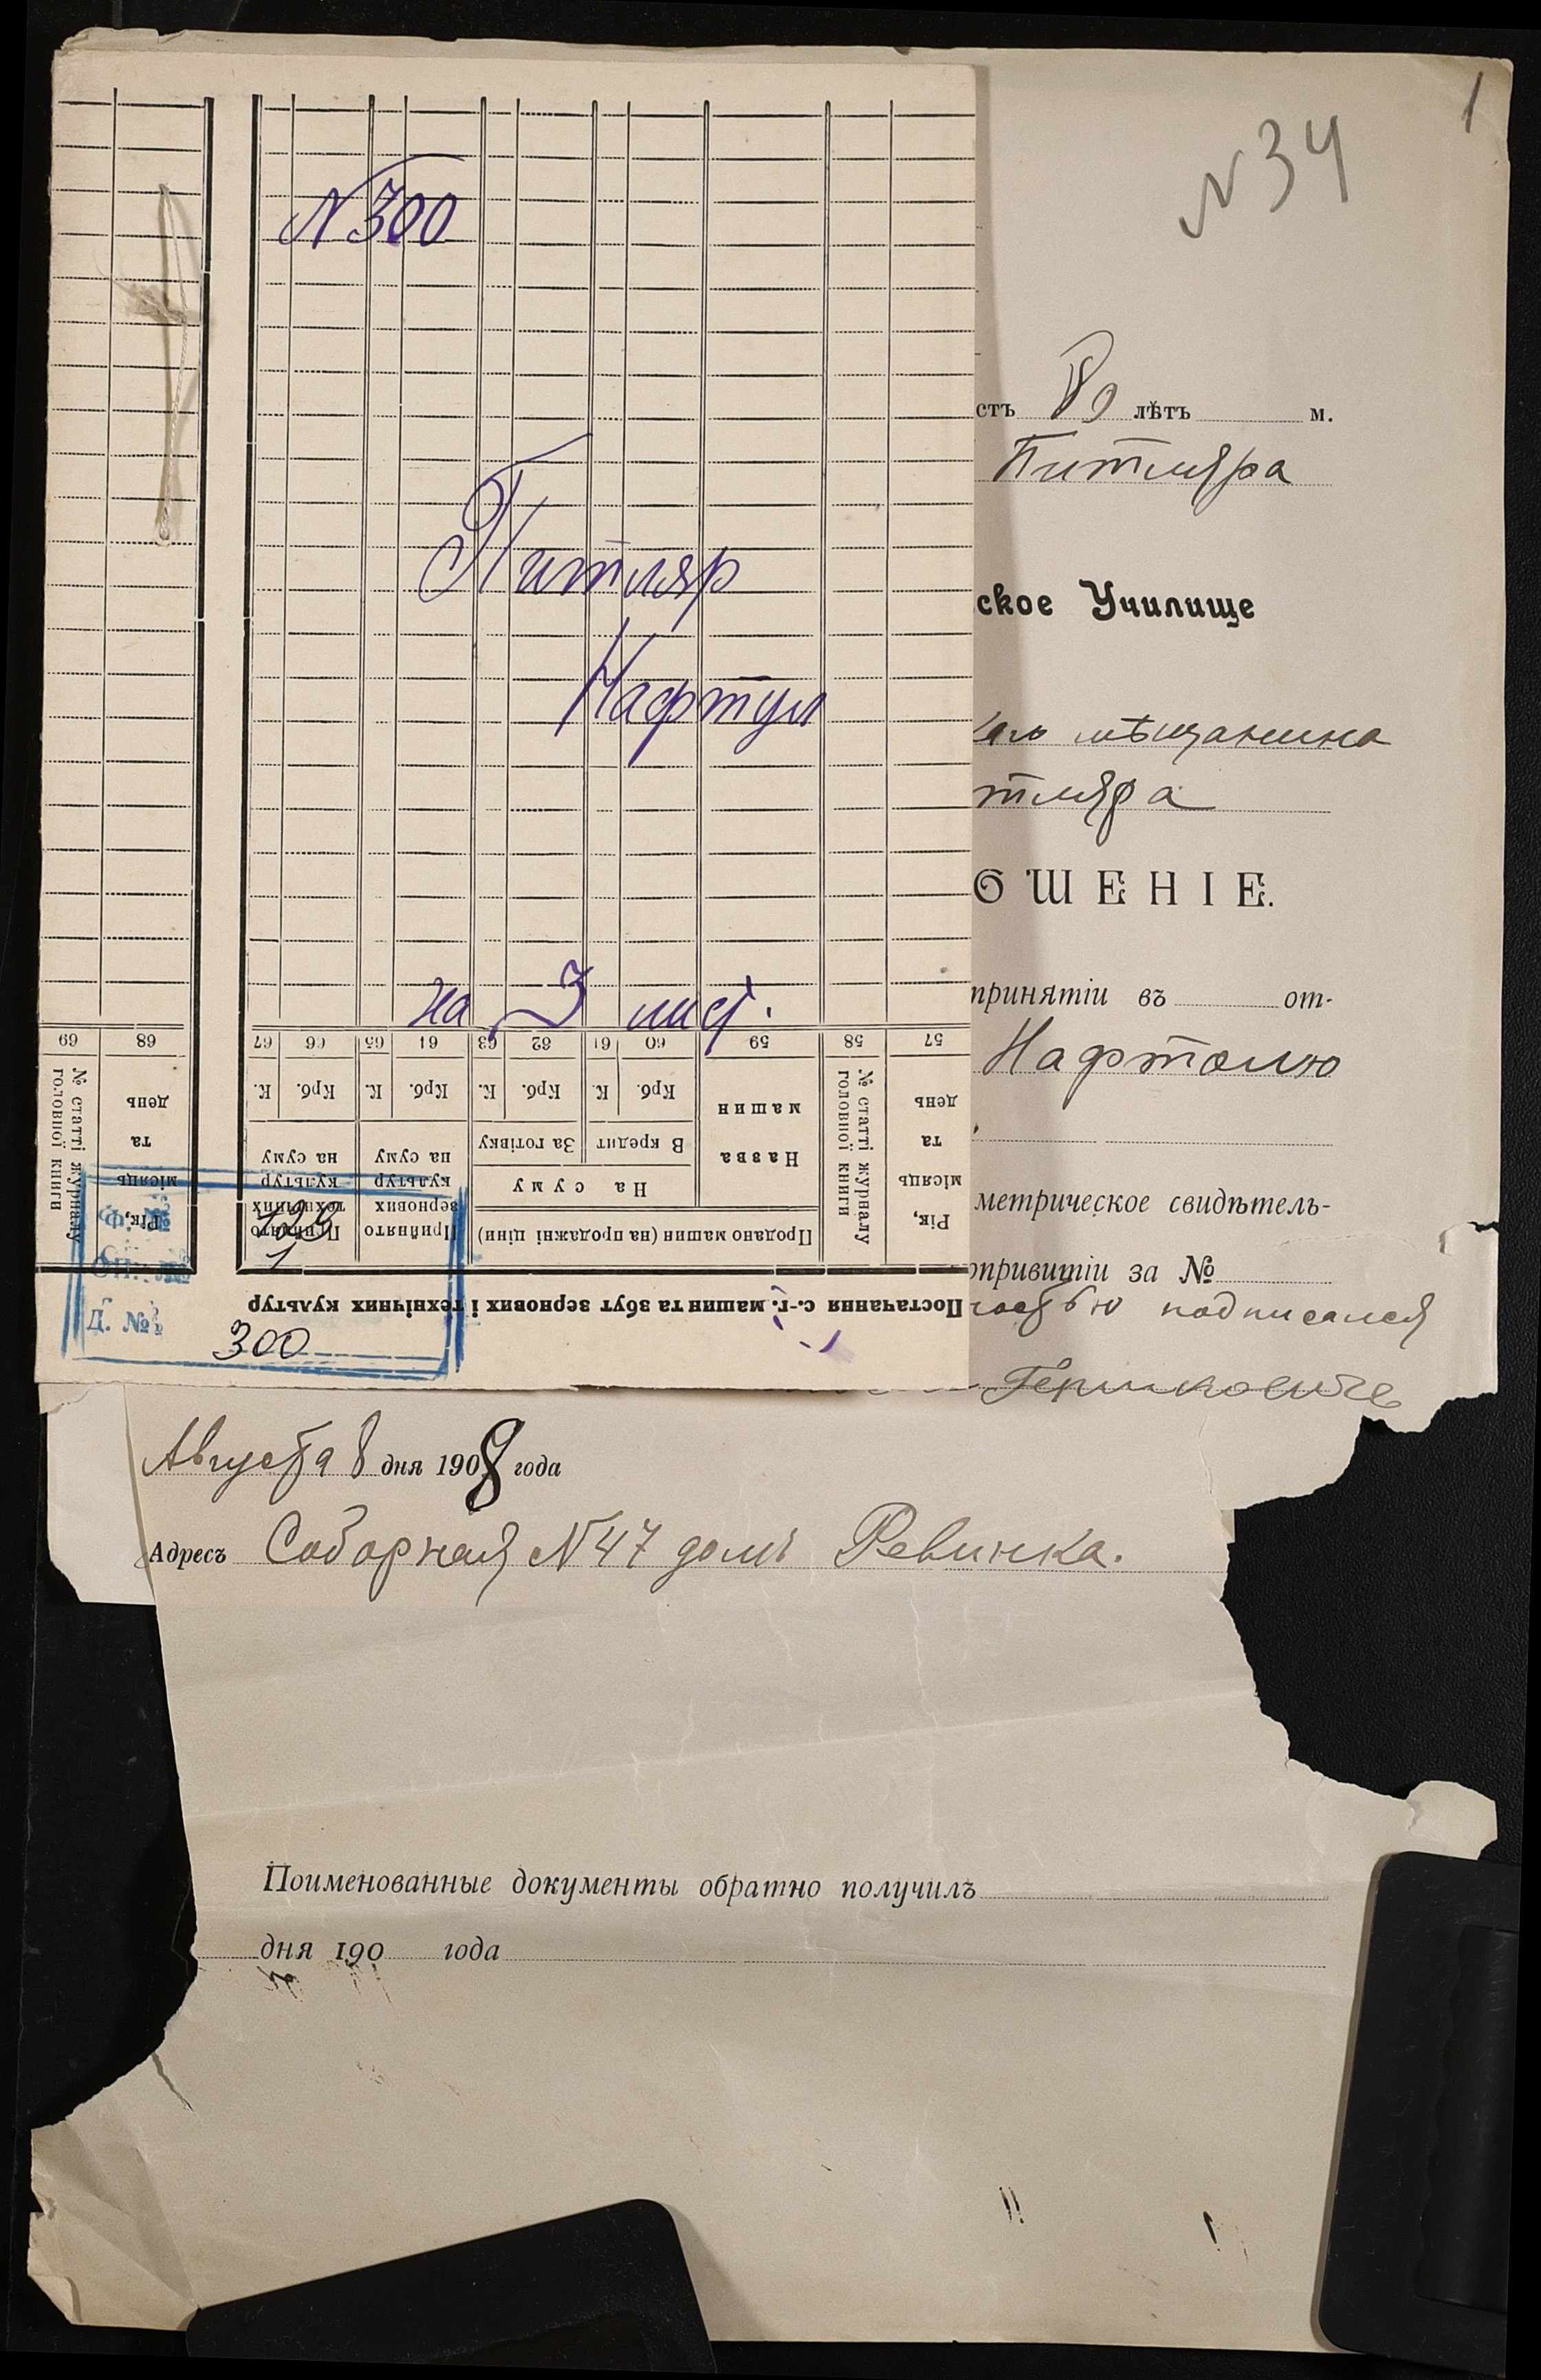 1
N 34
N 300
Питляр
Нафтул
на 3 лист.
69
68
67
66
65
64
63
62
61
60
59
58
57
№ статті журналу головної книги
Рік, місяць та день
К.
Крб.
К.
Крб.
К.
Крб.
К.
Крб.
Назва машин
№ статті журналу головної книги
Рік, місяць та день
За готівку
В кредит
На суму
Прийнято технічних культур на суму
Прийнято зернових культур на суму
Продано машин (на продажні ціни)
Постачання с.-г. машин та збут зернових і технічних культур
Ф. №
129
1
Д. №
300
сть 8 лѣтъ м.
Питляра
ское Училище
мѣщанина
тляра
ОШЕНІЕ.
принятіи въ от-
Нафтолю
метрическое свидѣтель-
опривитіи за №
подписался
Гершковичъ
Августа 8 дня 1908 года
Адресъ Соборная N 47 домъ Ревинка.
Поименованные документы обратно получилъ
дня 190 года